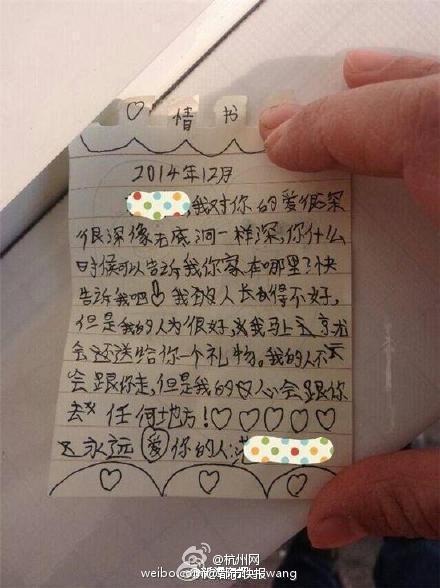 ♡情书
2014年12月
我对你的爱很深
很深像无底洞一样深,你什么
时候可以告诉我你家在哪里?快
告诉我吧!我人长得不好,
但是我的人为很好,我马上
会还送给你一个礼物。我的人不
会跟你走,但是我的心会跟你
去任何地方!♡♡♡♡♡
永远爱你的人:
@杭州网
weibo.com/
@都市快报
wang